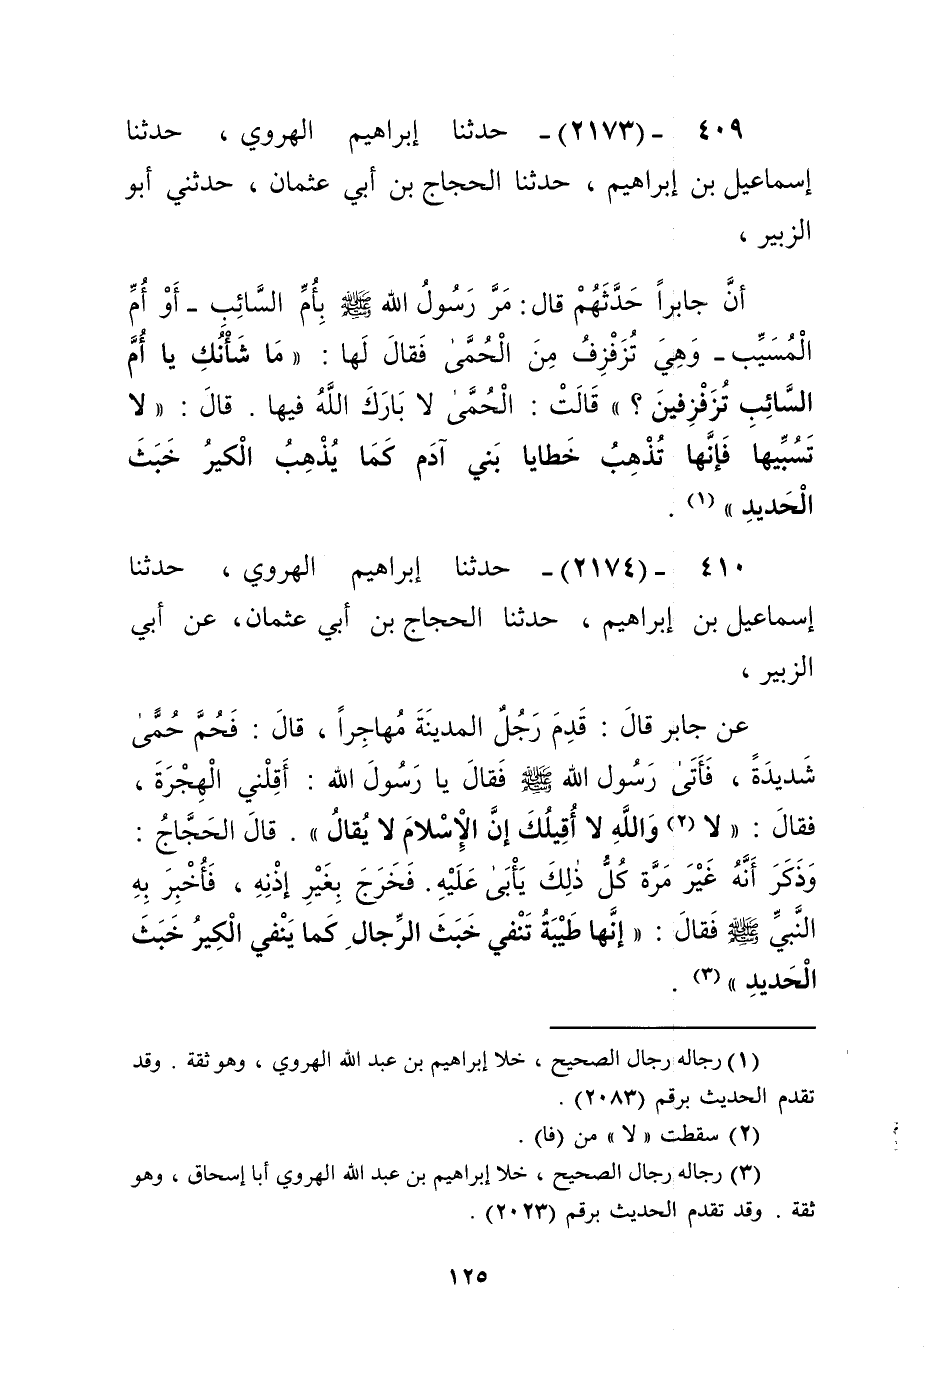 ٤٠٩ - (٢١٧٣) - حدثنا إبراهيم الهروي ، حدثنا
إسماعيل بن إبراهيم ، حدثنا الحجاج بن أبي عثمان ، حدثني أبو
الزبير ،
أنَّ جابراً حَدَّثَهُمْ قال : مَرَّ رَسُولُ الله ﷺ بِأُمِّ السَّائِبِ - أَوْ أُمِّ
الْمُسَيِّبِ - وَهِيَ تُزَفْزِفُ مِنَ الْحُمَّىٰ فَقالَ لَها : « مَا شَأْنُكِ يا أُمَّ
السَّائِبِ تُزَفْزِفينَ ؟ » قَالَتْ : الْحُمَّىٰ لا بَارَكَ اللَّهُ فيها . قالَ : « لا
تَسُبِّيها فَإِنَّها تُذْهِبُ خَطايا بَني آدَم كَمَا يُذْهِبُ الْكيرُ خَبَثَ
الْحَديدِ » (١) .
٤١٠ - (٢١٧٤) - حدثنا إبراهيم الهروي ، حدثنا
إسماعيل بن إبراهيم ، حدثنا الحجاج بن أبي عثمان، عن أبي
الزبير ،
عن جابر قالَ : قَدِمَ رَجُلٌ المدينَةَ مُهاجِراً ، قالَ : فَحُمَّ حُمًّىٰ
شَديدَةً ، فَأَتَىٰ رَسُول الله ﷺ فَقالَ يا رَسُولَ الله : أَقِلْني الْهِجْرَةَ ،
فقالَ : « لا (٢) وَاللَّهِ لا أُقِيلُكَ إنَّ الْإِسْلامَ لا يُقالُ » . قالَ الحَجَّاجُ :
وَذَكَرَ أَنَّهُ غَيْرَ مَرَّة كُلُّ ذٰلِكَ يَأْبَىٰ عَلَيْهِ . فَخَرَجَ بِغَيْرِ إذْنِهِ ، فَأُخْبِرَ بِهِ
النَّبيِّ ﷺ فَقالَ : « إنَّها طَيْبَةُ تَنْفي خَبَثَ الرِّجالِ كَما يَنْفي الْكِيرُ خَبَثَ
الْحَديدِ » (٣) .
(١) رجاله رجال الصحيح ، خلا إبراهيم بن عبد الله الهروي ، وهو ثقة . وقد
تقدم الحديث برقم (٢٠٨٣) .
(٢) سقطت « لا » من (فا) .
(٣) رجاله رجال الصحيح ، خلا إبراهيم بن عبد الله الهروي أبا إسحاق ، وهو
ثقة . وقد تقدم الحديث برقم (٢٠٢٣) .
١٢٥